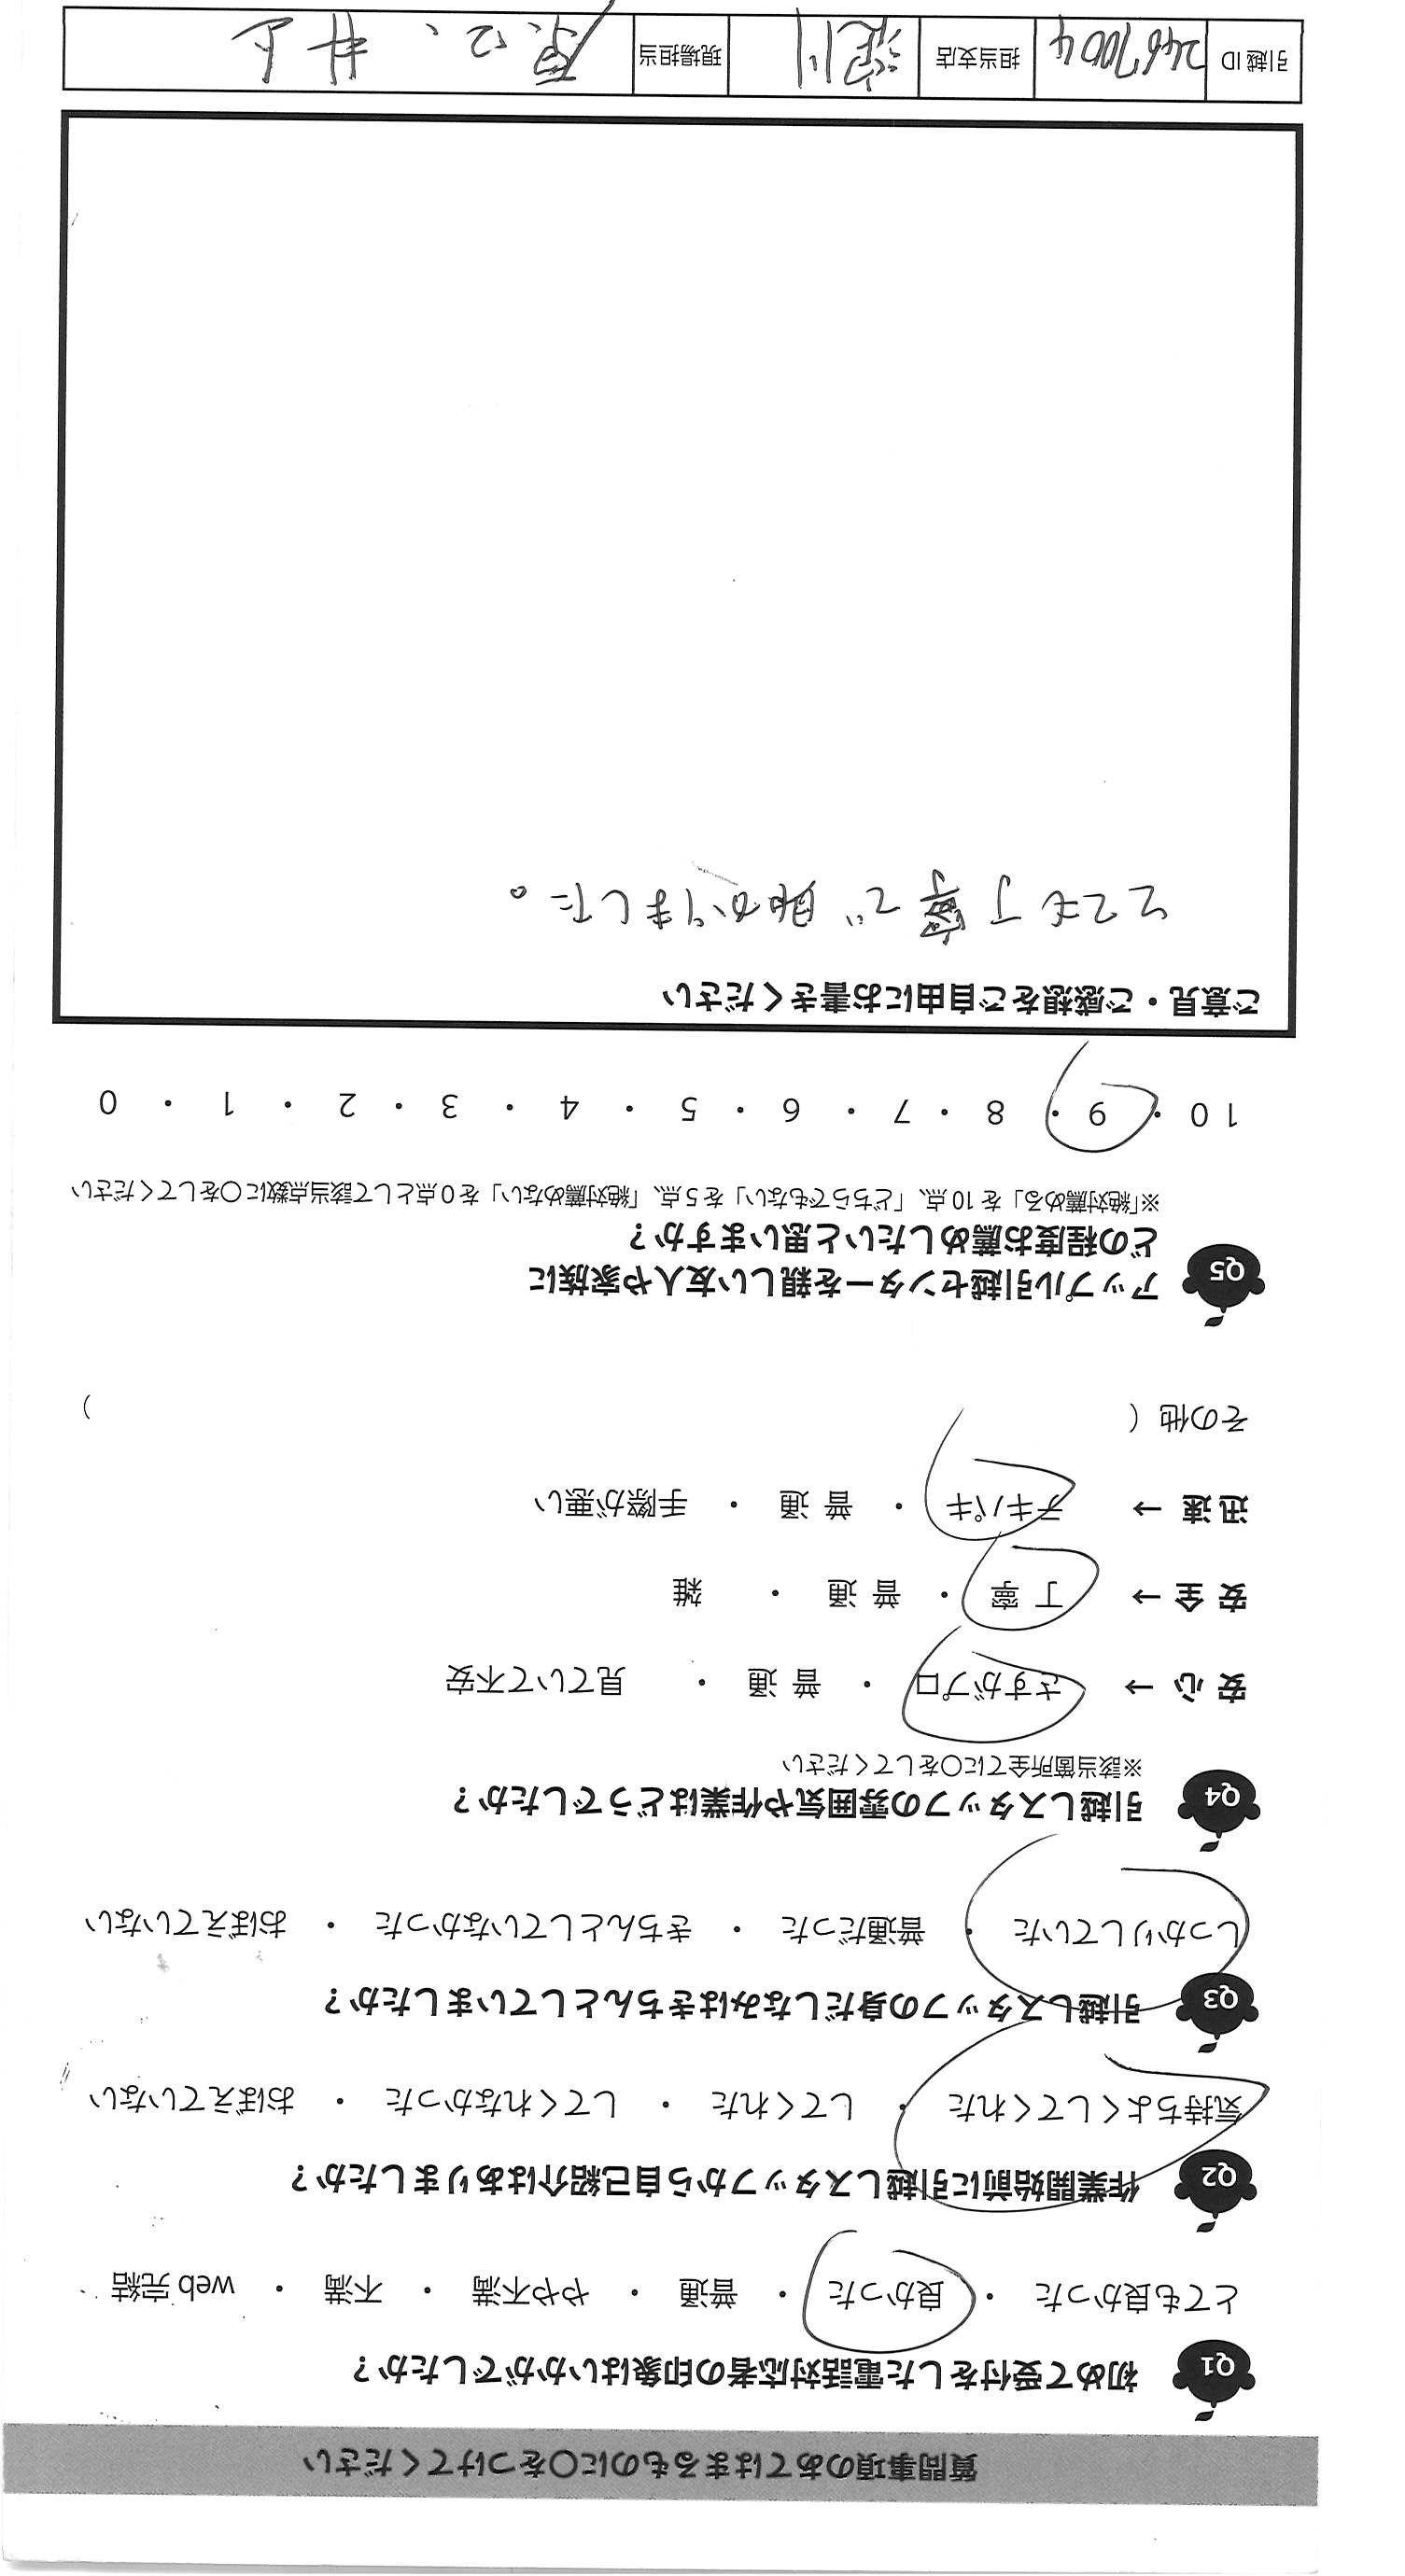 質問事項のあてはまるものに〇をつけてください
Q1 初めて受付をした電話対応者の印象はいかがでしたか？
とても良かった ・ 良かった ・ 普通 ・ やや不満 ・ 不満 ・ web完結
Q2 作業開始前に引越しスタッフから自己紹介はありましたか？
気持ちよくしてくれた ・ してくれた ・ してくれなかった ・ おぼえていない
Q3 引越しスタッフの身だしなみはきちんとしていましたか？
しっかりしていた ・ 普通だった ・ きちんとしていなかった ・ おぼえていない
Q4 引越しスタッフの雰囲気や作業はどうでしたか？
※該当箇所全てに〇をしてください
安心 → さすがプロ ・ 普通 ・ 見ていて不安
安全 → 丁寧 ・ 普通 ・ 雑
迅速 → テキパキ ・ 普通 ・ 手際が悪い
その他（ ）
Q5 アップル引越センターを親しい友人や家族に
どの程度お薦めしたいと思いますか？
※「絶対薦める」を10点、「どちらでもない」を5点、「絶対薦めない」を0点として該当点数に〇をしてください
10 ・ 9 ・ 8 ・ 7 ・ 6 ・ 5 ・ 4 ・ 3 ・ 2 ・ 1 ・ 0
ご意見・ご感想をご自由にお書きください
とても丁寧で助かりました。
引越ID 2467004 担当支店 現場担当 井上